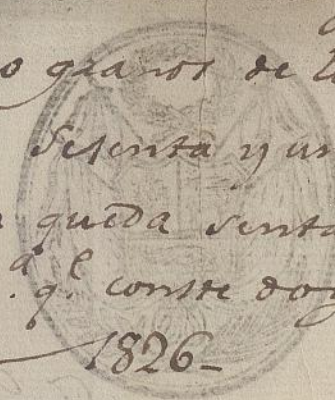 o granos de
Sesenta y un
queda senta
a q.e conste doy
1826_